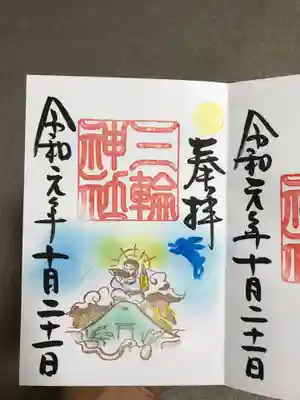 奉拝
三輪
神社
令和元年十月二十二日
令和元年十月二十二日